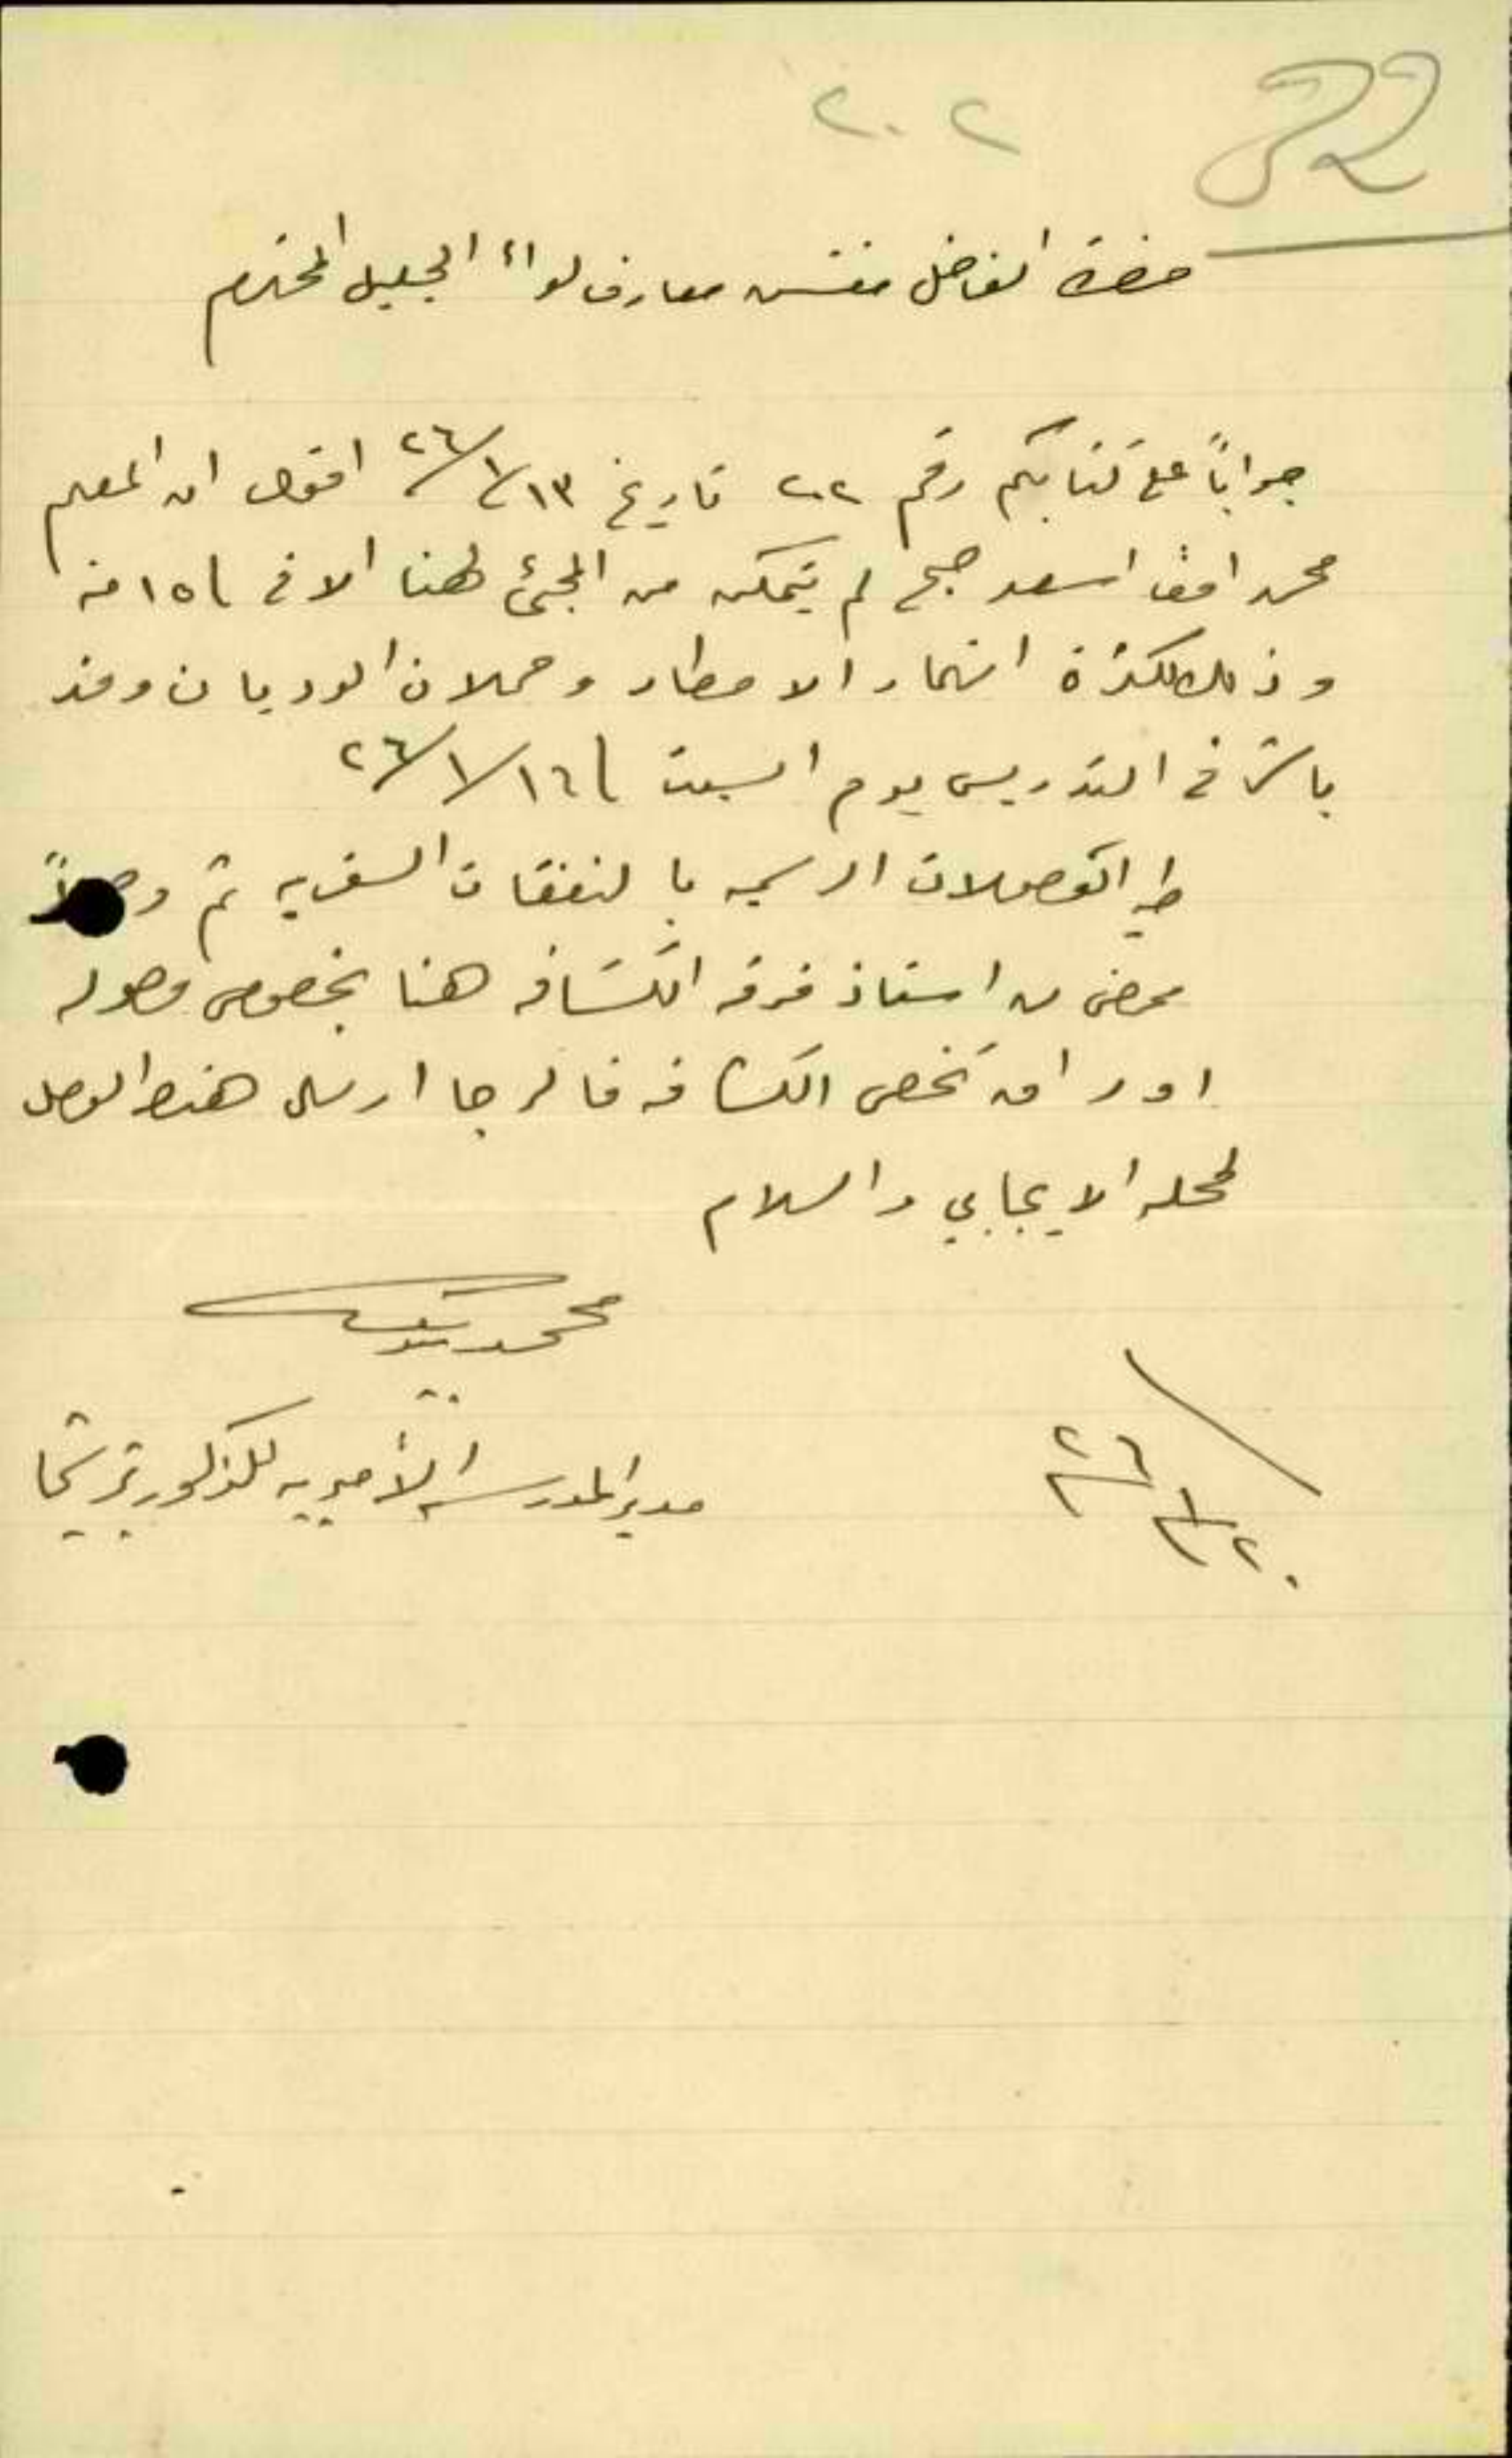 22 ٢٠٢
حضرة الفاضل مفتش معارف لواء الجليل المحترم
جواباً على كتابكم رقم ٢٠٢ تاريخ ٢٦/١/١٣ اقول ان المعلم
محمد اسعد صبح لم يتمكن من المجئ لهنا الا في ١٥ منه
وذلك لكثرة انهمار الامطار وحملان الوديان وقد
باشر في التدريس يوم السبت ٢٦/١/١٦
طيه الوصولات الرسميه بالنفقات السفريه ثم
ممضى من استاذ فرقه الكشافه هنا بخصوص وصوله
اوراق تخص الكشافه فالرجا ارسال هذا الوصل
لمحله الايجابي والسلام
محمد
مدير المدرسه الأميريه للذكور ترشيحا
٢٦/١/٢٠